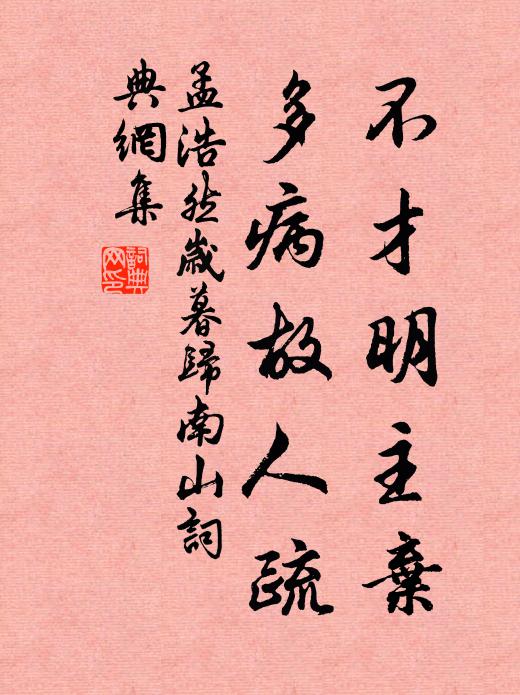 不才明主棄
多病故人疏
孟浩然歲暮歸南山詞
典網集
詞典
网印